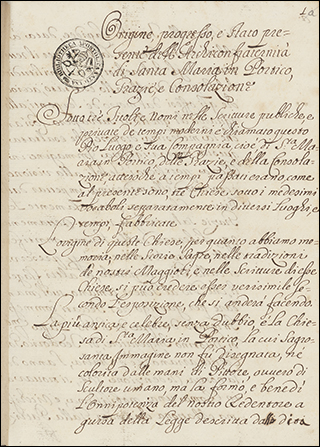 1a
Origine, progresso, e Stato pre-
sente dell'Archiconfraternità
di Santa Maria in Portico,
Grazie, e Consolazione
con tre nomi nelle Scritture publiche, e
private de tempi moderni è chiamato questo
Pio Luogo, e sua Compagnia, cioè di S.ta Ma-
ria in Portico, delle Grazie, e della Consola-
zione, atteso che à tempi passati erano come
al presente sono, tre Chiese sotto i medesimi
Vocaboli separatamente in diversi Luoghi, e
tempi fabbricate.
L'origine di queste Chiese, per quanto abbiamo me-
moria, nelle Storie Sacre, nelle tradizioni
de nostri Maggiori, e nelle Scritture di esse
Chiese, si può credere esser verisimile se-
condo l'esposizione, che si anderà facendo.
La più antica, e celebre, senza dubbio è la Chie-
sa di S.ta Maria in Portico, la cui Sagro-
santa Immagine non fu disegnata, ne
colorita dalle mani di Pittore, ovvero di
Scultore umano, ma la formò, e benedì
l'Onnipotenza del nostro Redentore a
guisa della Legge descritta dal dito